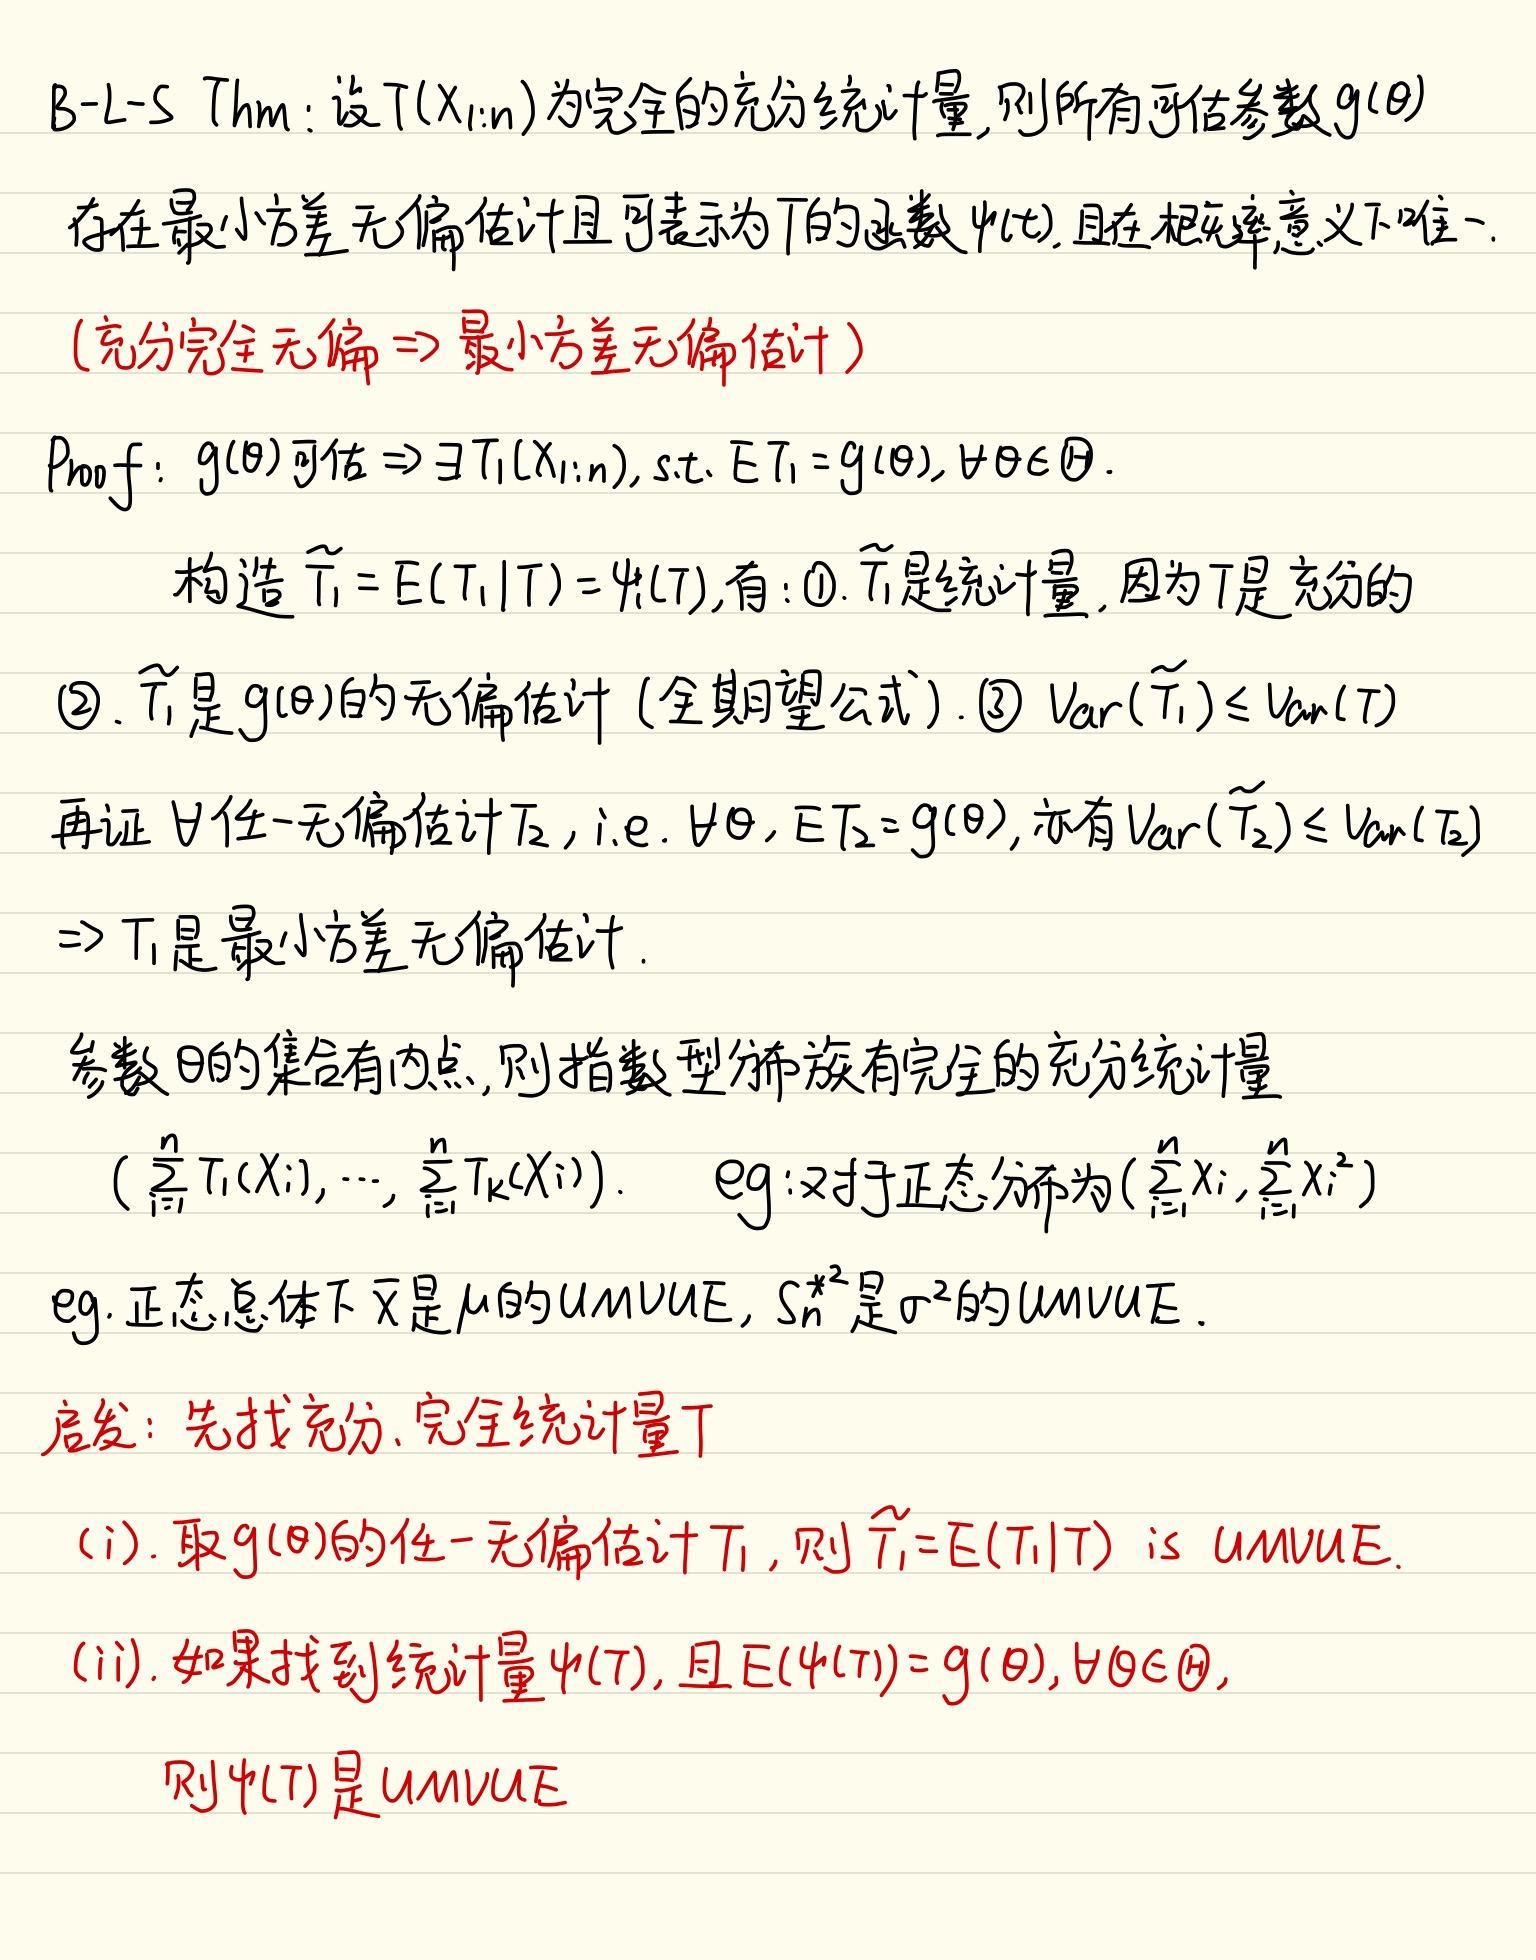 B-L-S Thm: 设T(X₁:ₙ)为完全的充分统计量,则所有可估参数g(θ)
存在最小方差无偏估计且可表示为T的函数ψ(t),且在概率意义下唯一.
(充分完全无偏 => 最小方差无偏估计)
Proof: g(θ)可估 => ∃T₁(X₁:ₙ), s.t. ET₁ = g(θ), ∀θ∈Θ.
构造 T̃₁ = E(T₁|T) = ψ₁(T),有: ①. T̃₁是统计量,因为T是充分的
②. T̃₁是g(θ)的无偏估计 (全期望公式). ③ Var(T̃₁) ≤ Var(T)
再证 ∀任一无偏估计T₂, i.e. ∀θ, ET₂ = g(θ), 亦有Var(T̃₂) ≤ Var(T₂)
=> T₁是最小方差无偏估计.
参数θ的集合有内点,则指数型分布族有完全的充分统计量
(∑ᵢ₌₁ⁿ T₁(Xᵢ), ⋯, ∑ᵢ₌₁ⁿ Tₖ(Xᵢ)). eg:对于正态分布为(∑ᵢ₌₁ⁿ Xᵢ, ∑ᵢ₌₁ⁿ Xᵢ²)
eg. 正态总体下 X̄是μ的UMVUE, Sₙ*²是σ²的UMVUE.
启发: 先找充分、完全统计量T
(i). 取g(θ)的任一无偏估计T₁, 则T̃₁=E(T₁|T) is UMVUE.
(ii). 如果找到统计量ψ(T), 且E(ψ(T)) = g(θ), ∀θ∈Θ,
则ψ(T)是UMVUE